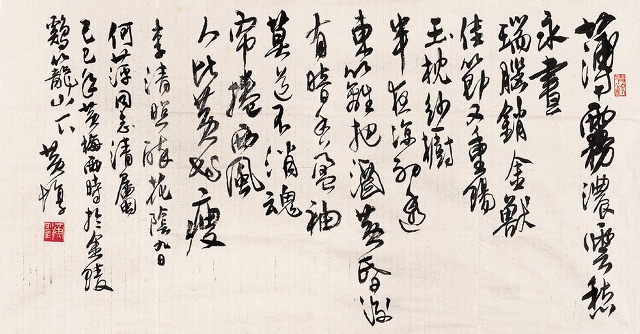 薄霧濃雲愁
永晝
瑞腦銷金獸
佳節又重陽
玉枕紗櫥
半夜涼初透
東籬把酒黃昏後
有暗香盈袖
莫道不消魂
帘捲西風
人比黃花瘦
李清照醉花陰九日
何萍同志清屬
己巳年黃梅雨時於金陵
鷄籠山下
黃惇